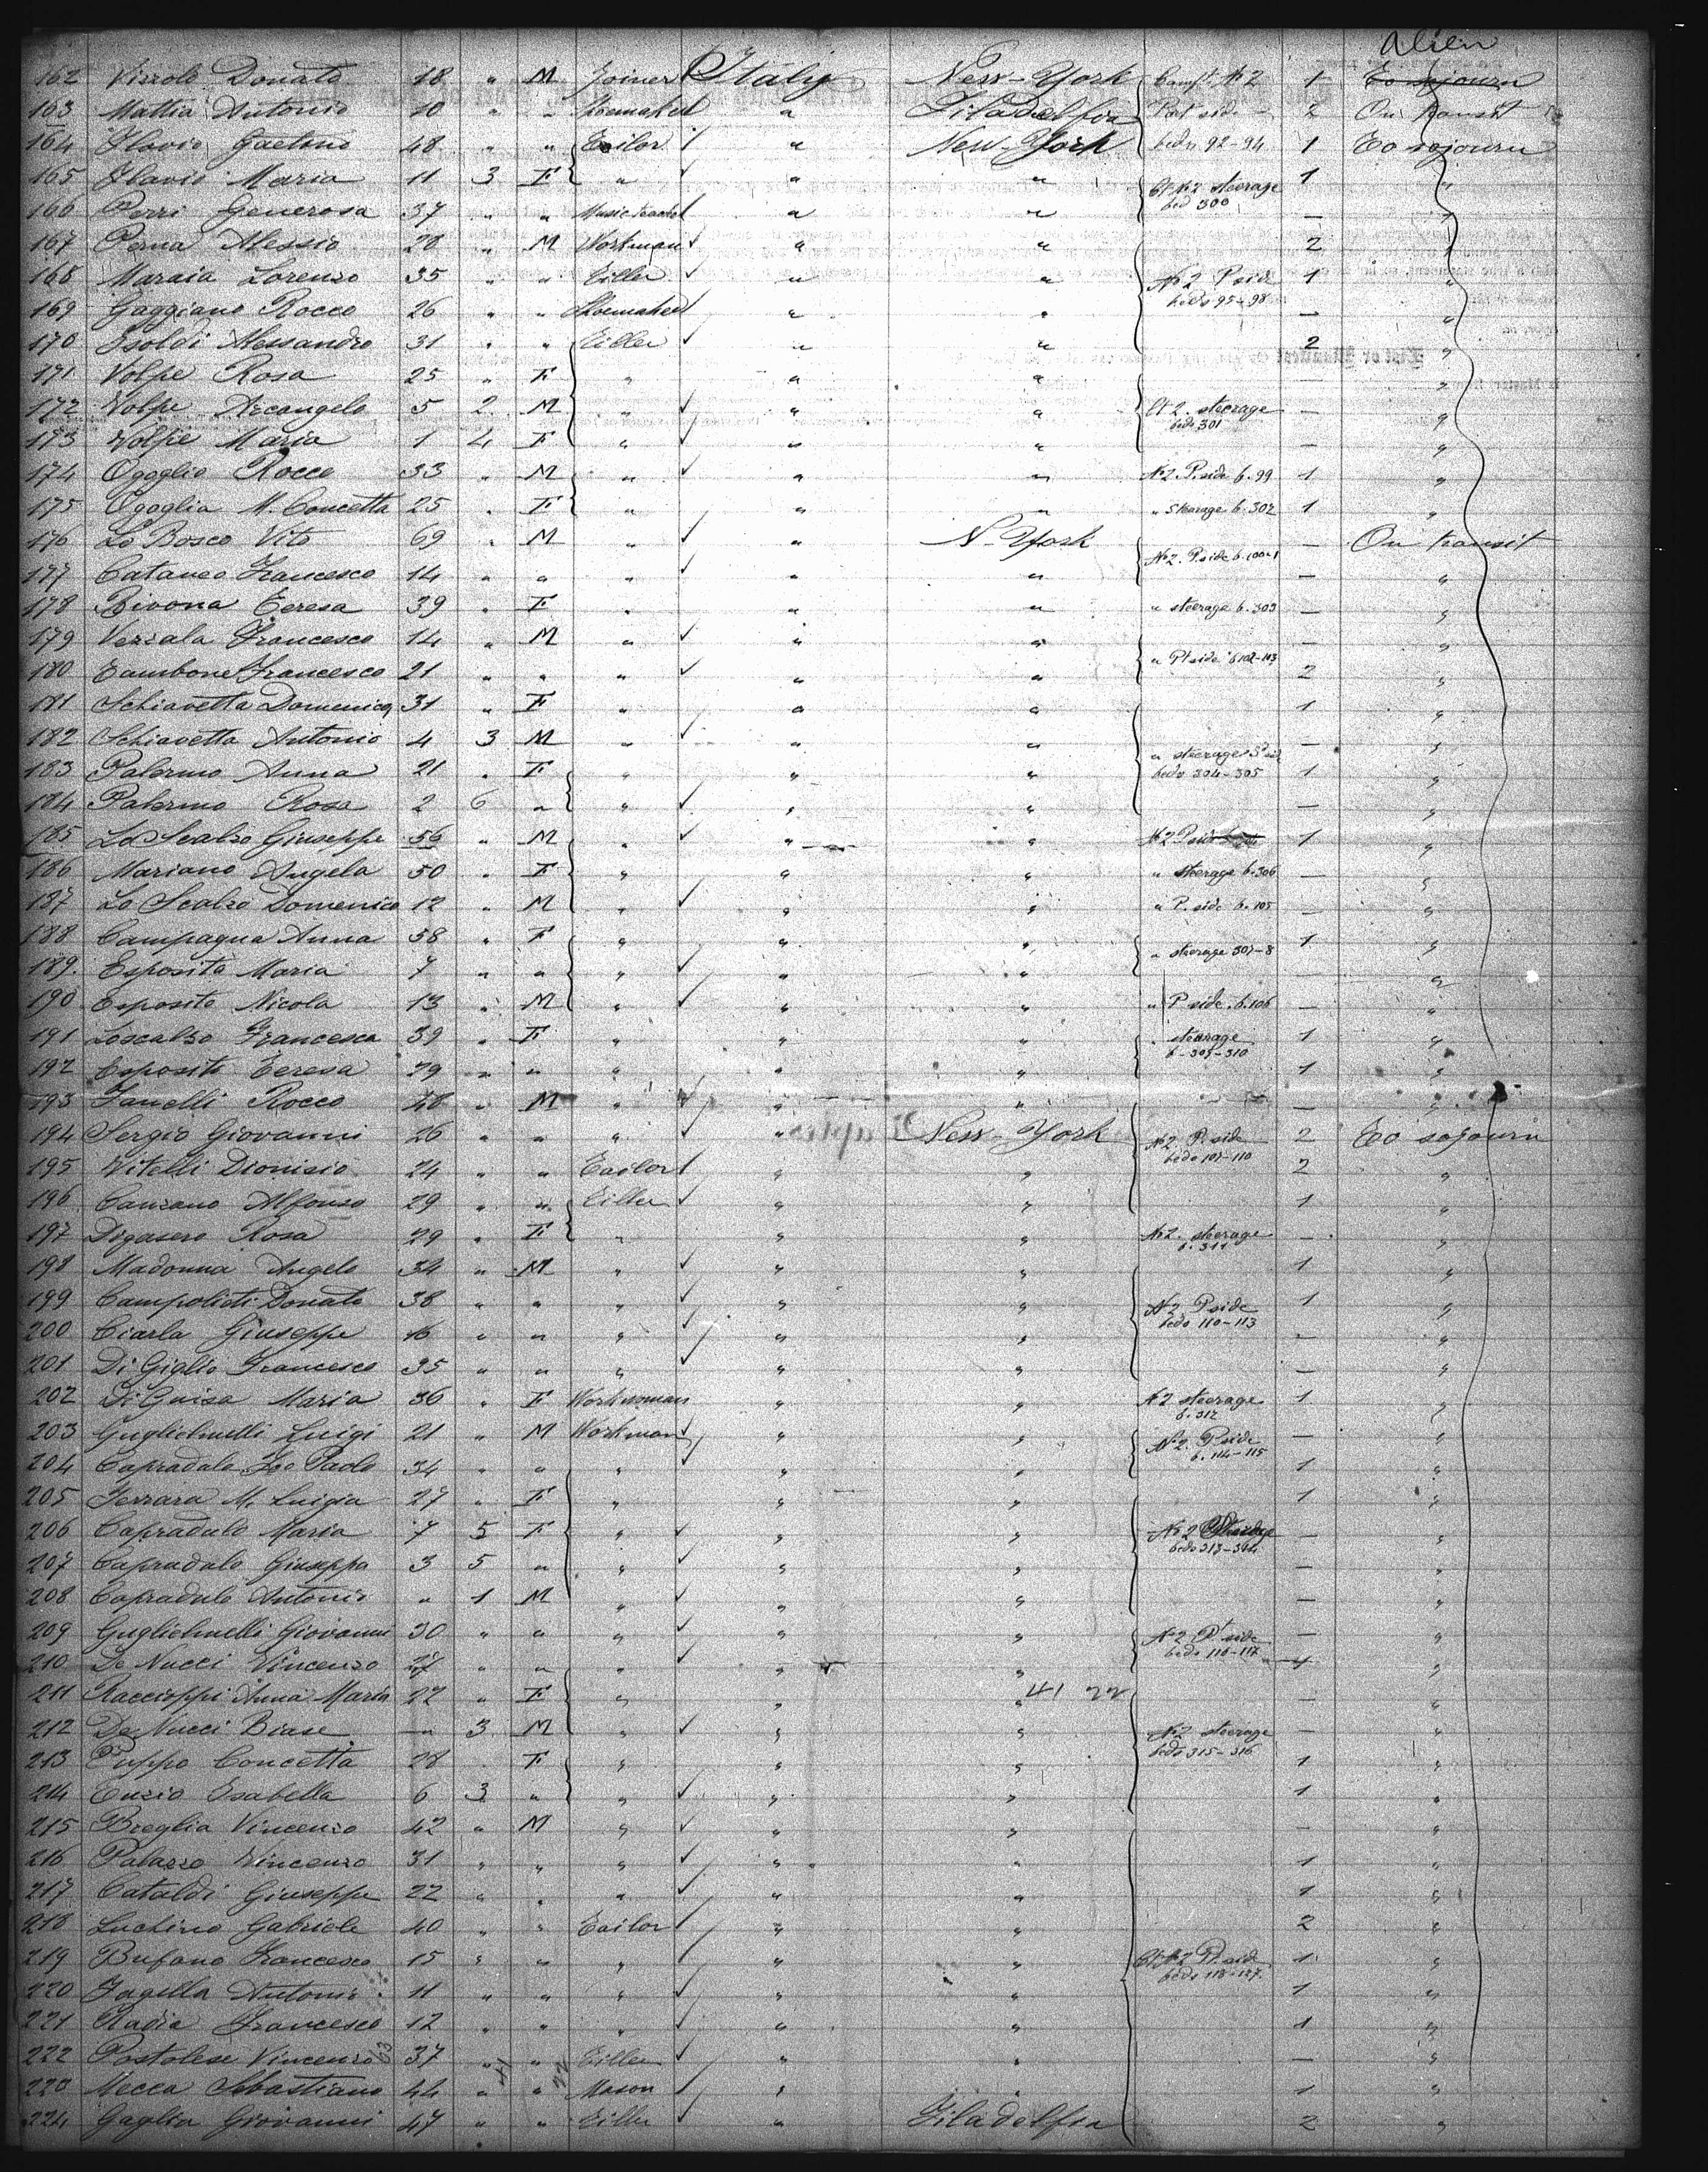 Alien
162 Vizzolo Donato 18 " M Joiner Italy New-York Compt. No 2 1 To sojourn
163 Mattia Antonio 10 " " Shoemaker " Filadelfia Port side 2 On transit
164 Flavio Gaetano 48 " " Tailor " New-York beds 92-94 1 To sojourn
165 Flavio Maria 11 3 F " " " 1 "
166 Perri Generosa 37 " " Music teacher " " Ct No 2 steerage bed 300 — "
167 Perna Alessio 28 " M Workman " " 2 "
168 Maraia Lorenzo 35 " " Tiller " " No 2 P side beds 95-98 1 "
169 Gaggiano Rocco 26 " " Shoemaker " " — "
170 Isoldi Alessandro 31 " " Tiller " " 2 "
171 Volpe Rosa 25 " F " " " — "
172 Volpe Arcangelo 5 2 M " " " Ct 2. steerage beds 301 — "
173 Volpe Maria 1 4 F " " " — "
174 Ogoglio Rocco 33 " M " " " No 2. P. side b. 99 1 "
175 Ogoglia M. Concetta 25 " F " " " " Steerage b. 302 1 "
176 Lo Bosco Vito 69 " M " " N-York — On transit
177 Cataneo Francesco 14 " " " " " No 2. P. side b. 100-1 — "
178 Bivona Teresa 39 " F " " " " steerage b. 303 — "
179 Verzala Francesco 14 " M " " " — "
180 Tambone Francesco 21 " " " " " " Pt side b 102-103 2 "
181 Schiavetta Domenica 31 " F " " " 1 "
182 Schiavetta Antonio 4 3 M " " " — "
183 Palermo Anna 21 " F " " " " steerage beds 304-305 1 "
184 Palermo Rosa 2 6 " " " " — "
185 Lo Scalzo Giuseppe 56 " M " " " No 2 P side 1 "
186 Mariano Angela 50 " F " " " " steerage b. 306 — "
187 Lo Scalzo Domenico 12 " M " " " " P. side b. 105 — "
188 Campagna Anna 58 " F " " " " steerage 307-8 1 "
189. Esposito Maria 7 " " " " " — "
190 Esposito Nicola 13 " M " " " " P side. b. 106 — "
191 Loscalzo Francesca 39 " F " " " " steerage b-309-310 1 "
192 Esposito Teresa 29 " " " " " 1 "
193 Fanelli Rocco 48 " M " " " — "
194 Sergio Giovanni 26 " " " " New-York No 2 P. side beds 107-110 2 To sojourn
195 Vitelli Dionisio 24 " " Tailor " " 2 "
196 Canzano Alfonso 29 " " Tiller " " 1 "
197 Digasero Rosa 29 " F " " " No 2. steerage b. 311 — "
198 Madonna Angelo 34 " M " " " 1 "
199 Campolieti Donato 38 " " " " " No 2 P side beds 110-113 1 "
200 Ciarla Giuseppe 16 " " " " " — "
201 Di Giglio Francesco 35 " " " " " — "
202 Di Guisa Maria 36 " F Workwoman " " No 2 steerage b. 312 1 "
203 Guglielmelli Luigi 21 " M Workman " " No 2. P side b. 114-115 — "
204 Capradalo Leo Paolo 34 " " " " " 1 "
205 Ferrara M. Luigia 27 " F " " " 1 "
206 Capradalo Maria 7 5 F " " " No 2 Steerage beds 313-314 — "
207 Capradalo Giuseppa 3 5 " " " " — "
208 Capradalo Antonio " 1 M " " " — "
209 Guglielmelli Giovanni 30 " " " " " No 2 Pt side beds 116-117 — "
210 De Nucci Vincenzo 27 " " " " " 1 "
211 Raccioppi Anna Maria 22 " F " " " 41 22 — "
212 De Nucci Biase — " 3 M " " " No 2 steerage beds 315-316 — "
213 Puppo Concetta 28 F " " " 1 "
214 Tuzio Isabella 6 3 " " " " 1 "
215 Breglia Vincenzo 42 " M " " " — "
216 Palazzo Vincenzo 31 " " " " " 1 "
217 Cataldi Giuseppe 22 " " " " " 1 "
218 Luchino Gabriele 40 " " Tailor " " 2 "
219 Bufano Francesco 15 " " " " " Ct No 2 Pt. side beds 118-127. 1 "
220 Fagella Antonio 11 " " " " " 1 "
221 Radia Francesco 12 " " " " " 1 "
222 Postolese Vincenzo 63 37 " " Tiller " " — "
41 22
223 Mecca Sebastiano 44 " " Mason " " 1 "
224 Gaglia Giovanni 47 " " Tiller " Filadelfia 2 "